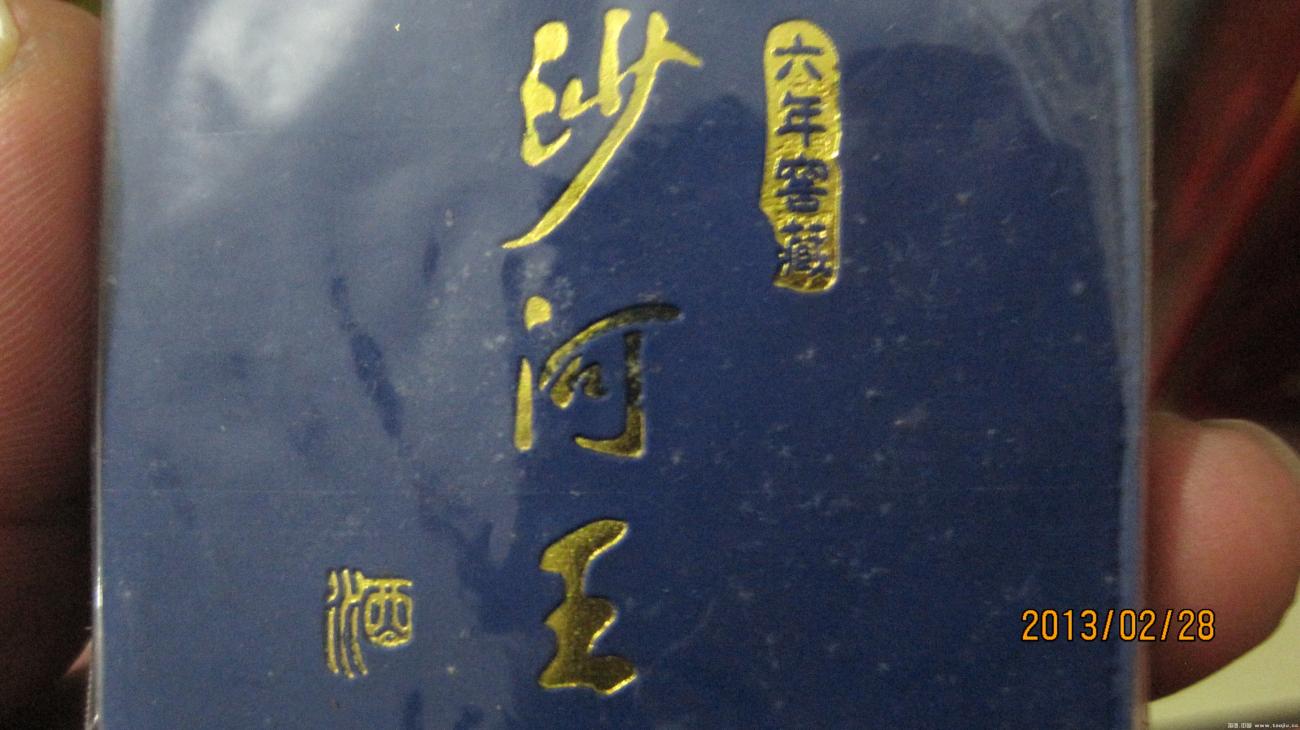 六年窖藏
沙河王
酒
2013/02/28